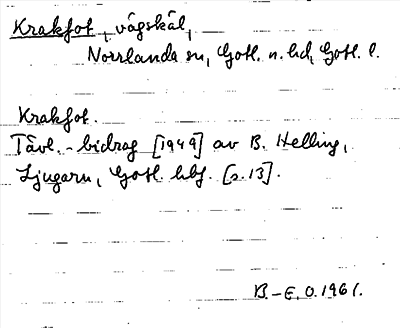 Krakfot, vägskäl,
Norrlanda sn, Gotl. n. hd, Gotl. l.
Krakfot.
Tävl.-bidrag [1949] av B. Helling,
Ljugarn, Gotl. hbf. [s.13].
B.-E.O.1961.